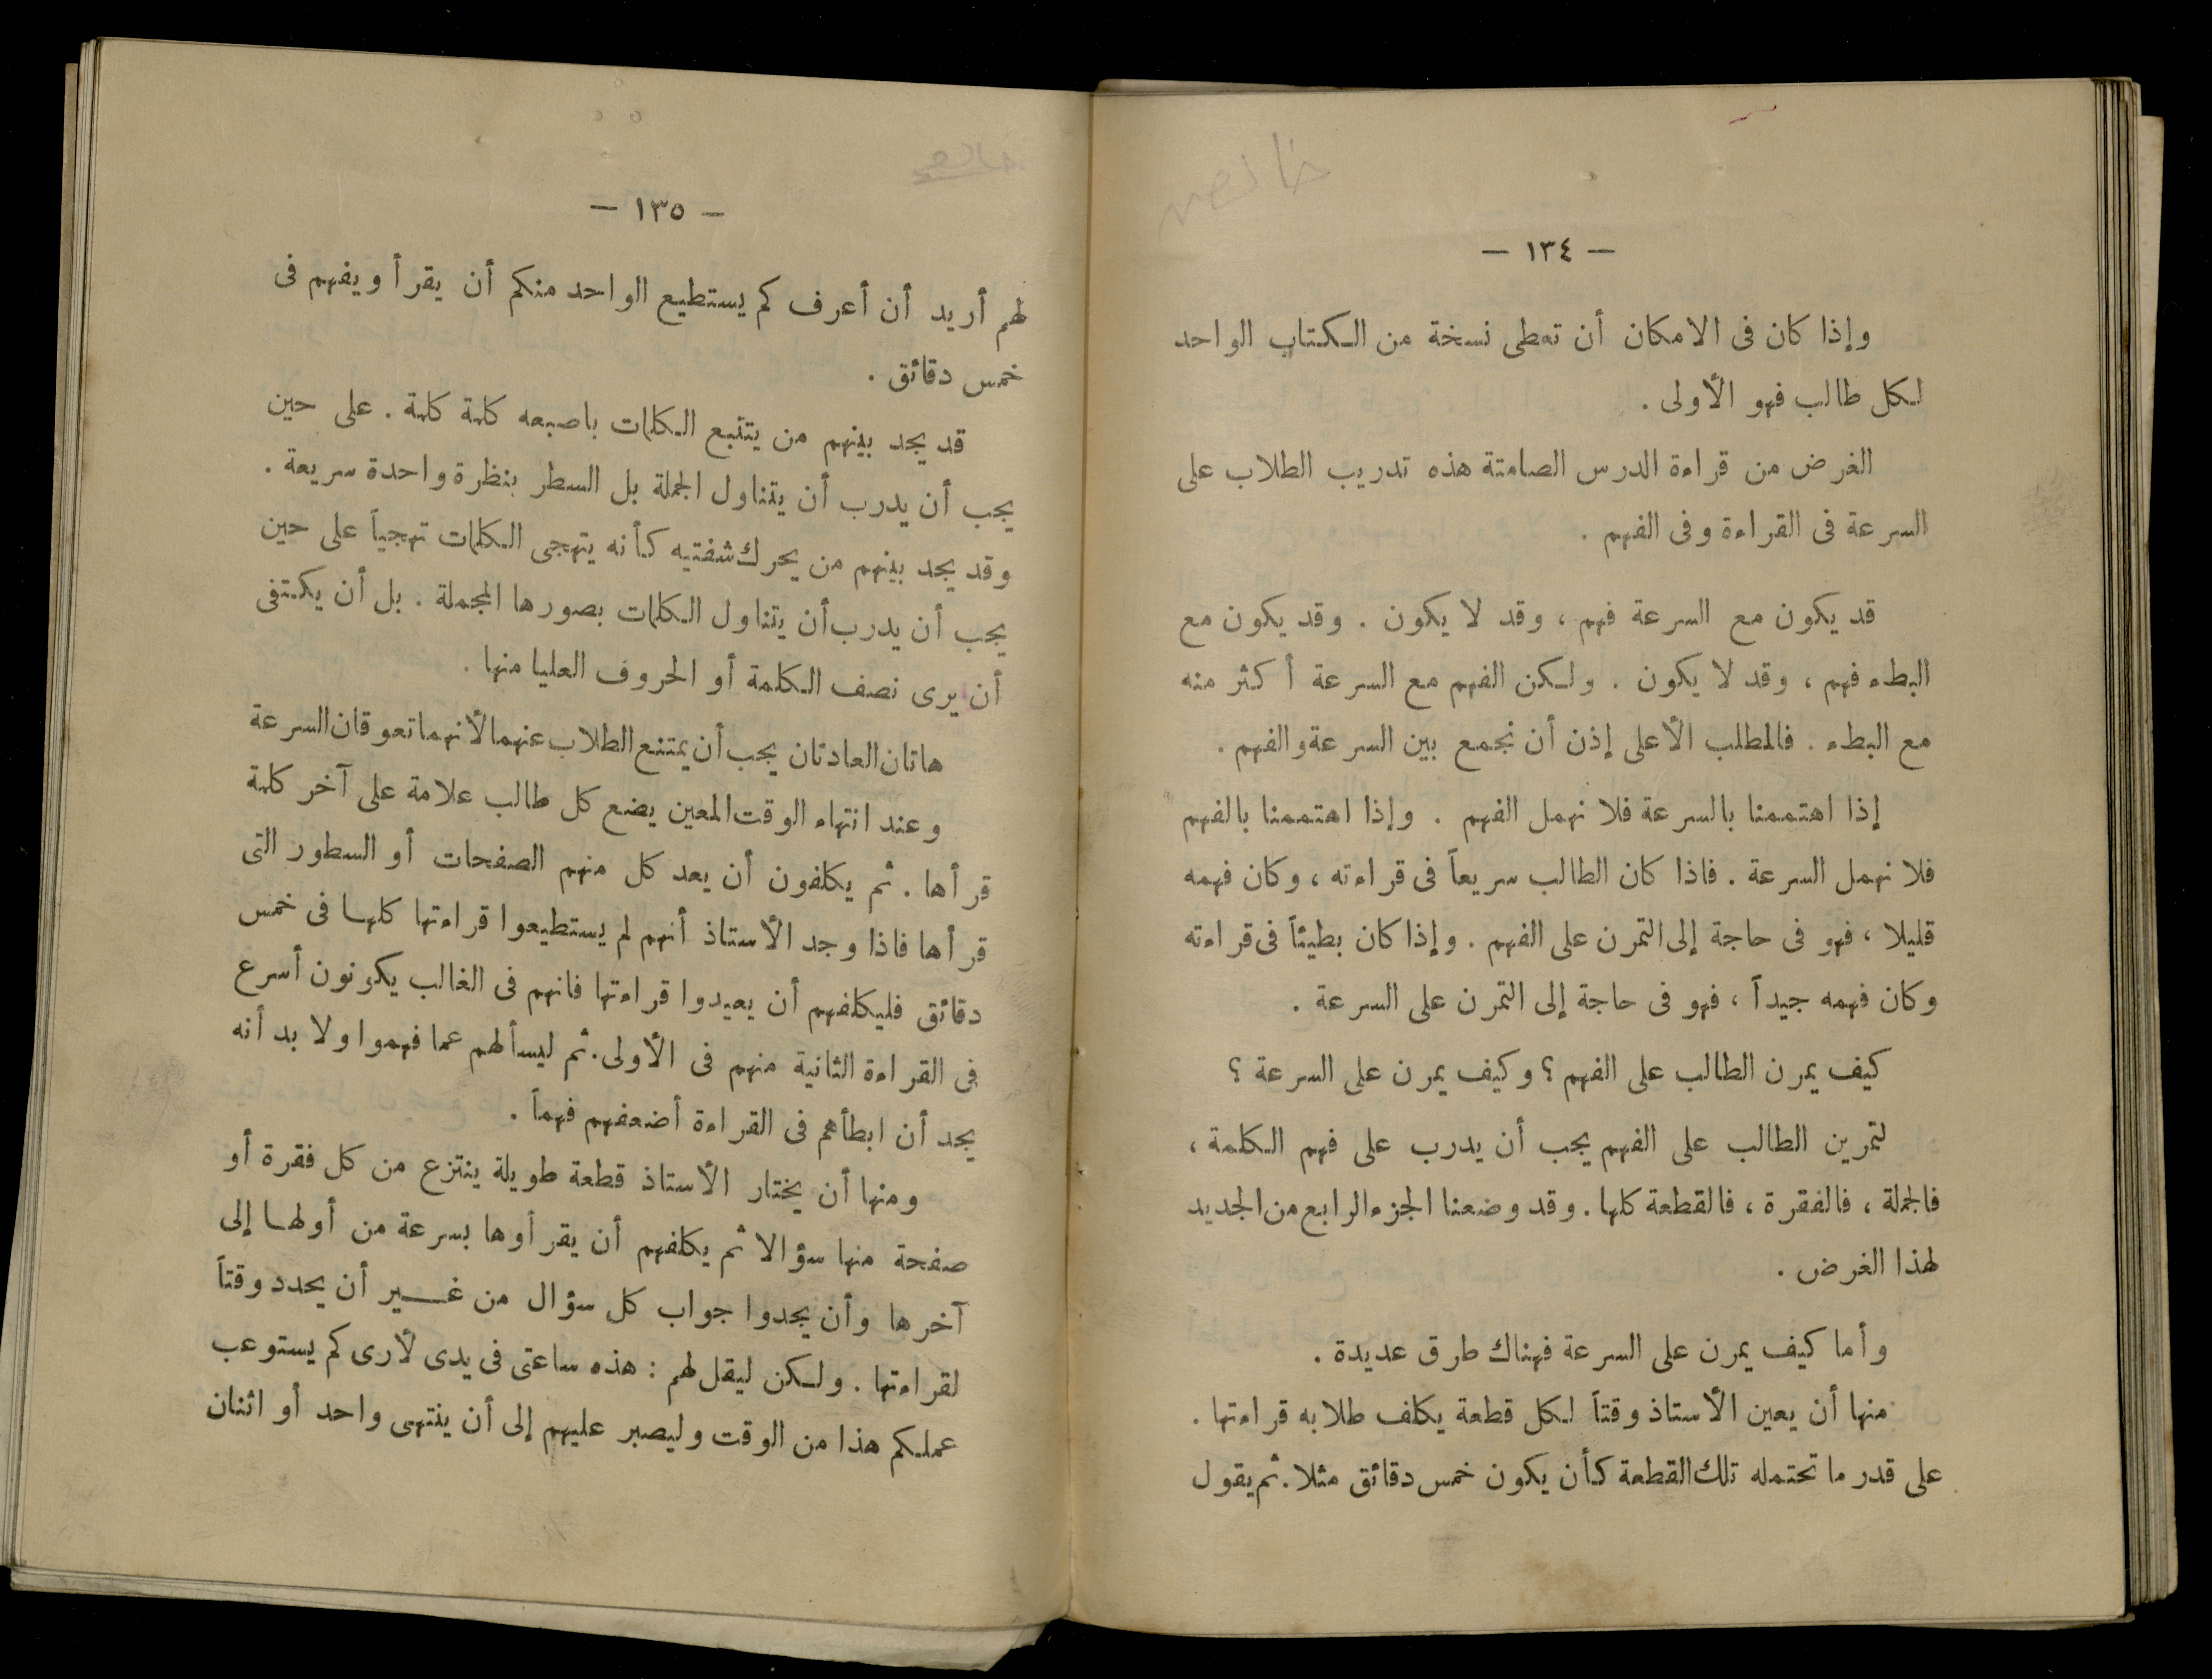 — ١٣٤ —
وإذا كان فى الامكان أن تعطى نسخة من الكتاب الواحد
لكل طالب فهو الأولى .
الغرض من قراءة الدرس الصامتة هذه تدريب الطلاب على
السرعة فى القراءة وفى الفهم .
قد يكون مع السرعة فهم ، وقد لا يكون . وقد يكون مع
البطء فهم ، وقد لا يكون . ولكن الفهم مع السرعة أكثر منه
مع البطء . فالمطلب الأعلى إذن أن نجمع بين السرعة والفهم .
إذا اهتممنا بالسرعة فلا نهمل الفهم . وإذا اهتممنا بالفهم
فلا نهمل السرعة . فاذا كان الطالب سريعاً فى قراءته ، وكان فهمه
قليلا ، فهو فى حاجة إلى التمرن على الفهم . وإذا كان بطيئاً فى قراءته
وكان فهمه جيداً ، فهو فى حاجة إلى التمرن على السرعة .
كيف يمرن الطالب على الفهم ؟ وكيف يمرن على السرعة ؟
لتمرين الطالب على الفهم يجب أن يدرب على فهم الكلمة ،
فالجملة ، فالفقرة ، فالقطعة كلها . وقد وضعنا الجزء الرابع من الجديد
لهذا الغرض .
وأما كيف يمرن على السرعة فهناك طرق عديدة .
منها أن يعين الأستاذ وقتاً لكل قطعة يكلف طلابه قراءتها .
على قدر ما تحتمله تلك القطعة كأن يكون خمس دقائق مثلا . ثم يقول
— ١٣٥ —
لهم أريد أن أعرف كم يستطيع الواحد منكم أن يقرأ ويفهم فى
خمس دقائق .
قد يجد بينهم من يتتبع الكلمات باصبعه كلمة كلمة . على حين
يجب أن يدرب أن يتناول الجملة بل السطر بنظرة واحدة سريعة .
وقد يجد بينهم من يحرك شفتيه كأنه يتهجى الكلمات تهجياً على حين
يجب أن يدرب أن يتناول الكلمات بصورها المجملة . بل أن يكتفى
أن يرى نصف الكلمة أو الحروف العليا منها .
هاتان العادتان يجب أن يمتنع الطلاب عنهما لأنهما تعوقان السرعة
وعند انتهاء الوقت المعين يضع كل طالب علامة على آخر كلمة
قرأها . ثم يكلفون أن يعد كل منهم الصفحات أو السطور التى
قرأها فاذا وجد الأستاذ أنهم لم يستطيعوا قراءتها كلها فى خمس
دقائق فليكلفهم أن يعيدوا قراءتها فانهم فى الغالب يكونون أسرع
فى القراءة الثانية منهم فى الأولى . ثم ليسألهم عما فهموا ولا بد أنه
يجد أن ابطأهم فى القراءة أضعفهم فهماً .
ومنها أن يختار الأستاذ قطعة طويلة ينتزع من كل فقرة أو
صفحة منها سؤالا ثم يكلفهم أن يقرأوها بسرعة من أولها إلى
آخرها وأن يجدوا جواب كل سؤال من غير أن يحدد وقتاً
لقراءتها . ولكن ليقل لهم : هذه ساعتى فى يدى لأرى كم يستوعب
عملكم هذا من الوقت وليصبر عليهم إلى أن ينتهى واحد أو اثنان